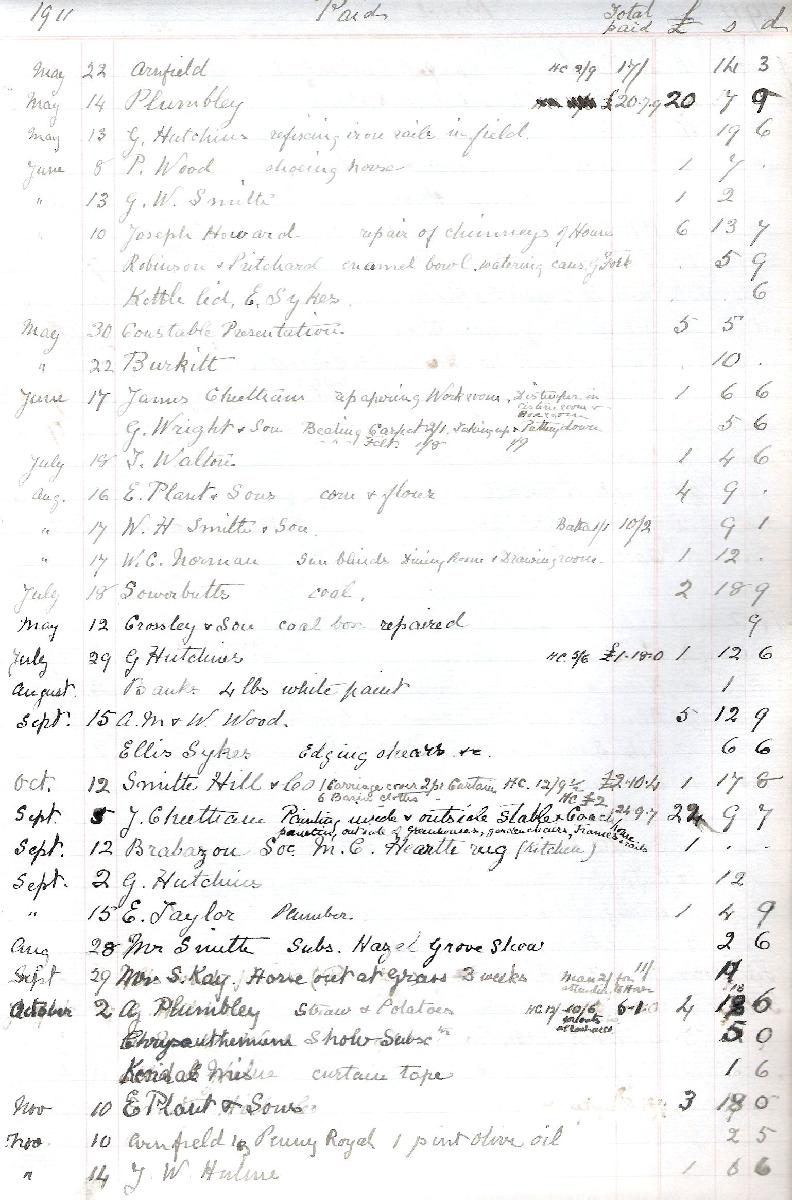 1911 Paid Total paid £ s d
May 22 Arnfield HC 2/9 17/ 14 3
May 14 Plumbley £20-7-9 20 7 9
May 13 G. Hutchins refixing iron rails in field 19 6
June 8 P. Wood shoeing horse 1 7 .
" 13 G. W. Smith 1 2
" 10 Joseph Howard repair of chimneys of House 6 13 7
Robinson & Pritchard enamel bowl, watering cans, G Fork . 5 9
Kettle lid, E. Sykes . . 6
May 30 Constable Presentation. 5 5
" 22 Burkitt 10 .
June 17 James Cheetham repapering Workroom, Distemper in 1 6 6
cistern room &
Boxroom
G. Wright & Son Beating Carpet 2/1, Taking up & Putting down 5 6
" " Felt 1/8 1/9
July 18 T. Walton. 1 4 6
Aug. 16 E. Plant & Sons corn & flour 4 9 .
" 17 W. H Smith & Son. 1/1 10/2 9 1
" 17 W. C. Norman Sun blinds Dining Room & Drawing room. 1 12 .
July 18 Sowerbutts coal. 2 18 9
May 12 Crossley & Son coal box repaired 9
July 29 G Hutchins HC 5/6 £1-18-0 1 12 6
August. Banks 4 lbs white paint 1
Sept. 15 A. M & W. Wood. 5 12 9
Ellis Sykes Edging shears &c. 6 6
Oct. 12 Smith Hill & Co 1 Carriage cover 2 pr Curtain HC. 12/9½ £2-10-4 1 17 8
6 Basin cloths HC £2
Sept. 5 J. Cheetham Painting inside & outside Stable & Coach 24 9-7 22 9 7
house
painting, outside of greenhouses, garden chairs, frames & rails
Sept. 12 Brabazon Soc M. C. Hearth rug (Kitchen) 1 . .
Sept. 2 G. Hutchins 12
" 15 E. Taylor Plumber. 1 4 9
Aug 28 Mr Smith Subs. Hazel Grove Show 2 6
Sept 29 Mr S. Kay. Horse out at Grass 3 weeks man 2/ for 11/
attending to Horse
October 2 A. Plumbley Straw & Potatoes 10/6 6-1-0 4 18 6
Chrysanthemum Show Subsc 5 0
Kendal Milne curtain tape 1 6
Nov 10 E Plant & Sons 3 18 0
Nov 10 Arnfield Penny Royal 1 pint olive oil 2 5
" 14 J W Hulme 1 6 6